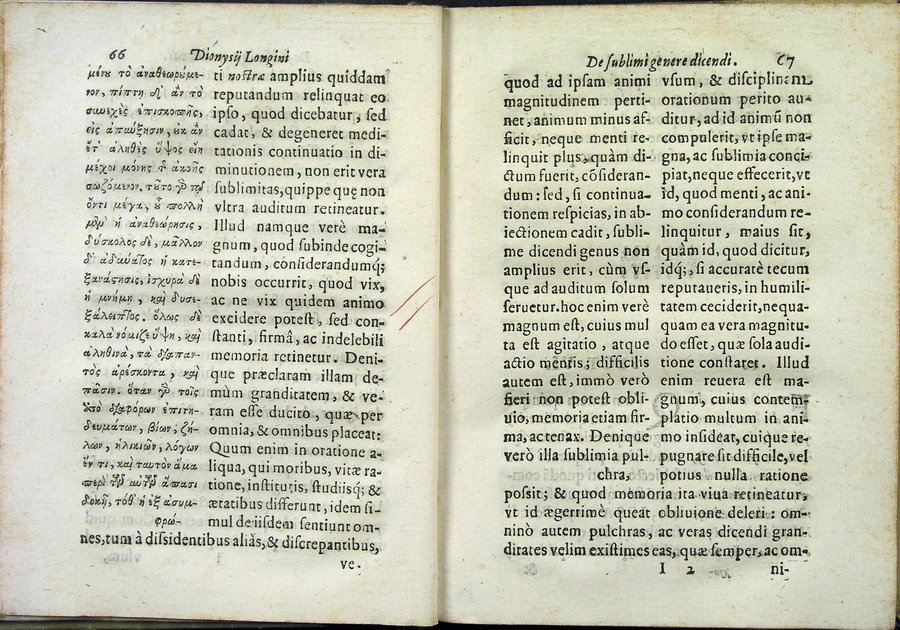 66 Dionysij Longini
μένου τὸ ἀναθεωρούμε-
νον, πίπτῃ δ' ἂν τὸ
συνεχὲς ἐπισκοπῆς,
εἰς ἀπαύξησιν, οὐκ ἂν
ἔτ' ἀληθὲς ὕψος εἴη
μέχρι μόνης τῆς ἀκοῆς
σωζόμενον. τοῦτο γὰρ τῷ
ὄντι μέγα, οὗ πολλὴ
μὲν ἡ ἀναθεώρησις,
δύσκολος δὲ, μᾶλλον
δ' ἀδύνατος ἡ κατε-
ξανάστησις, ἰσχυρὰ δὲ
ἡ μνήμη, καὶ δυσε-
ξάλειπτος. ὅλως δὲ
καλὰ νόμιζε ὕψη, καὶ
ἀληθινὰ, τὰ διαπαν-
τὸς ἀρέσκοντα, καὶ
πᾶσιν. ὅταν γὰρ τοῖς
ἀπὸ διαφόρων ἐπιτη-
δευμάτων, βίων, ζή-
λων, ἡλικιῶν, λόγων
ἕν τι, καὶ ταυτὸν ἅμα
περὶ τῶν αὐτῶν ἅπασι
δοκῇ, τόθ' ἡ ἐξ ἀσυμ-
φρω-
ti nostræ amplius quiddam
reputandum relinquat eo
ipso, quod dicebatur, sed
cadat, & degeneret medi-
tationis continuatio in di-
minutionem, non erit vera
sublimitas, quippe quę non
vltra auditum retineatur.
Illud namque verè ma-
gnum, quod subinde cogi-
tandum, cōsiderandumq́;
nobis occurrit, quod vix,
ac ne vix quidem animo
excidere potest, sed con-
stanti, firmâ, ac indelebili
memoria retinetur. Deni-
que præclaram illam de-
mùm granditatem, & ve-
ram esse ducito, quæ per
omnia, & omnibus placeat:
Quum enim in oratione a-
liqua, qui moribus, vitæ ra-
tione, institutis, studiisq́; &
ætatibus differunt, idem si-
mul de iisdem sentiunt om-
nes, tum à dissidentibus aliàs, & discrepantibus,
ve-
De sublimi genere dicendi. 67
quod ad ipsam animi
magnitudinem perti-
net, animum minus af-
ficit, neque menti re-
linquit plus, quàm di-
ctum fuerit, cōsideran-
dum: sed, si continua-
tionem respicias, in ab-
iectionem cadit, subli-
me dicendi genus non
amplius erit, cùm vs-
que ad auditum solum
seruetur. hoc enim verè
magnum est, cuius mul
ta est agitatio, atque
actio mentis; difficilis
autem est, immò verò
fieri non potest obli-
uio, memoria etiam fir-
ma, ac tenax. Denique
verò illa sublimia pul-
chra,
vsum, & disciplinam
orationum perito au-
ditur, ad id animū non
compulerit, vt ipse ma-
gna, ac sublimia conci-
piat, neque effecerit, vt
id, quod menti, ac ani-
mo considerandum re-
linquitur, maius sit,
quàm id, quod dicitur,
idq́;, si accuratè tecum
reputaueris, in humili-
tatem ceciderit, nequa-
quam ea vera magnitu-
do esset, quæ sola audi-
tione constaret. Illud
enim reuera est ma-
gnum, cuius contem-
platio multum in ani-
mo insideat, cuique re-
pugnare sit difficile, vel
potius nulla ratione
possit; & quod memoria ita viua retineatur,
vt id ægerrimè queat obliuione deleri: om-
ninò autem pulchras, ac veras dicendi gran-
ditates velim existimes eas, quæ semper, ac om-
I 2 ni-